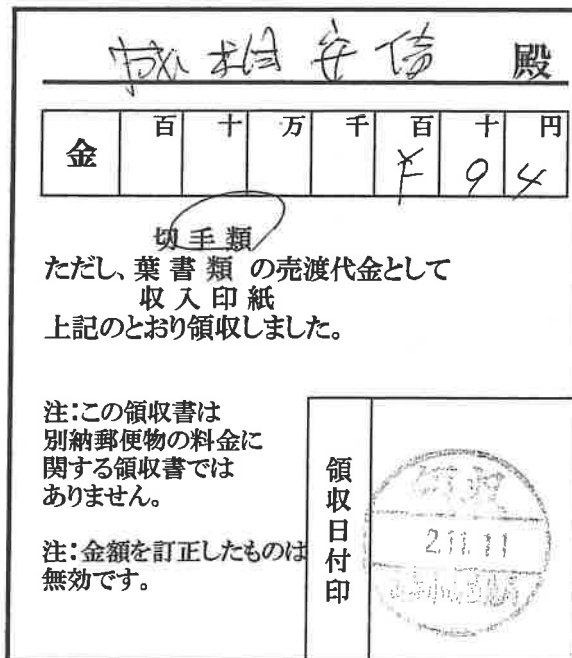 殿
金 百 十 万 千 百 十 円
¥ 9 4
切手類
ただし、葉書類 の売渡代金として
収入印紙
上記のとおり領収しました。
注:この領収書は
別納郵便物の料金に
関する領収書では
ありません。
注:金額を訂正したものは
無効です。
領収日付印
2.11.11